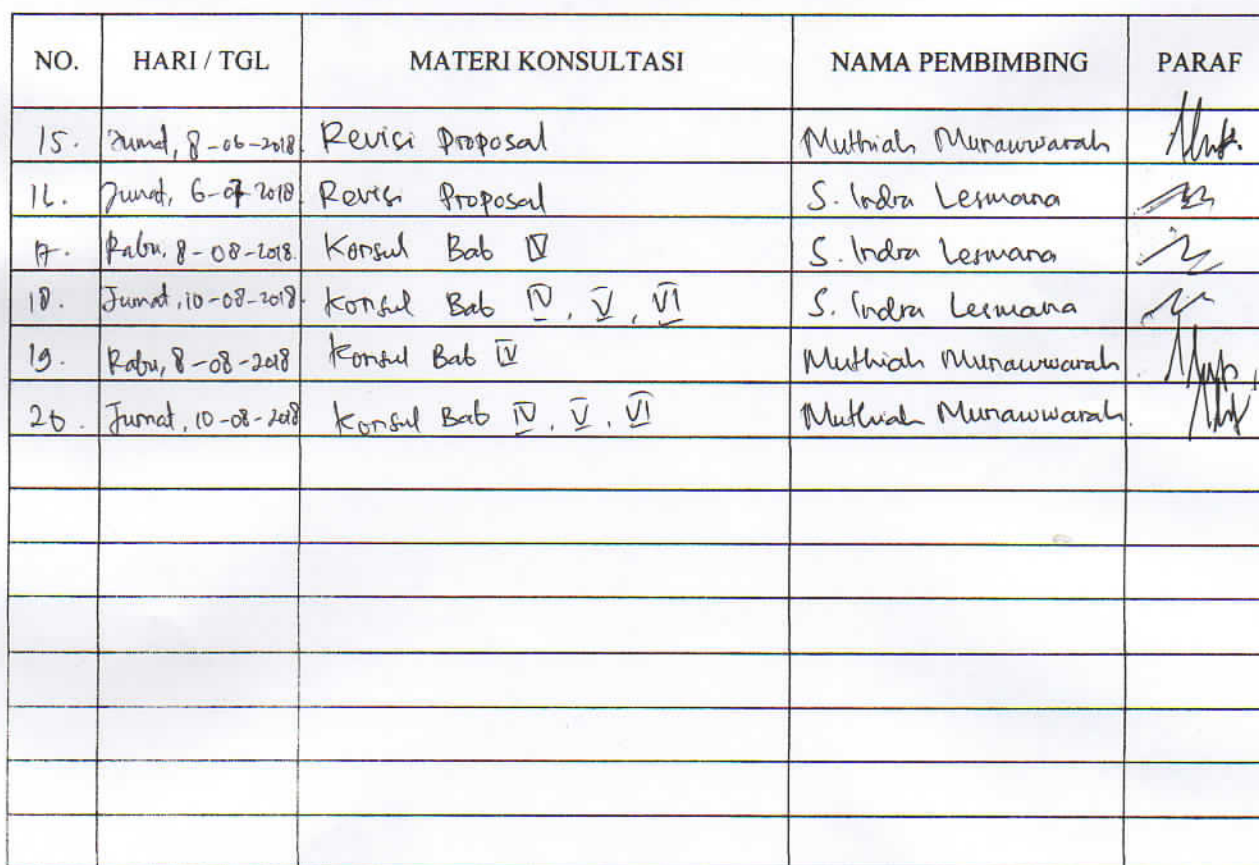 NO. HARI / TGL MATERI KONSULTASI NAMA PEMBIMBING PARAF
15. Jumat, 8-06-2018 Revisi Proposal Muthiah Munawwarah
16. Jumat, 6-07-2018 Revisi Proposal S. Indra Lesmana
17. Rabu, 8-08-2018 Konsul Bab IV S. Indra Lesmana
18. Jumat, 10-08-2018 Konsul Bab IV, V, VI S. Indra Lesmana
19. Rabu, 8-08-2018 Konsul Bab IV Muthiah Munawwarah
20. Jumat, 10-08-2018 Konsul Bab IV, V, VI Muthiah Munawwarah.